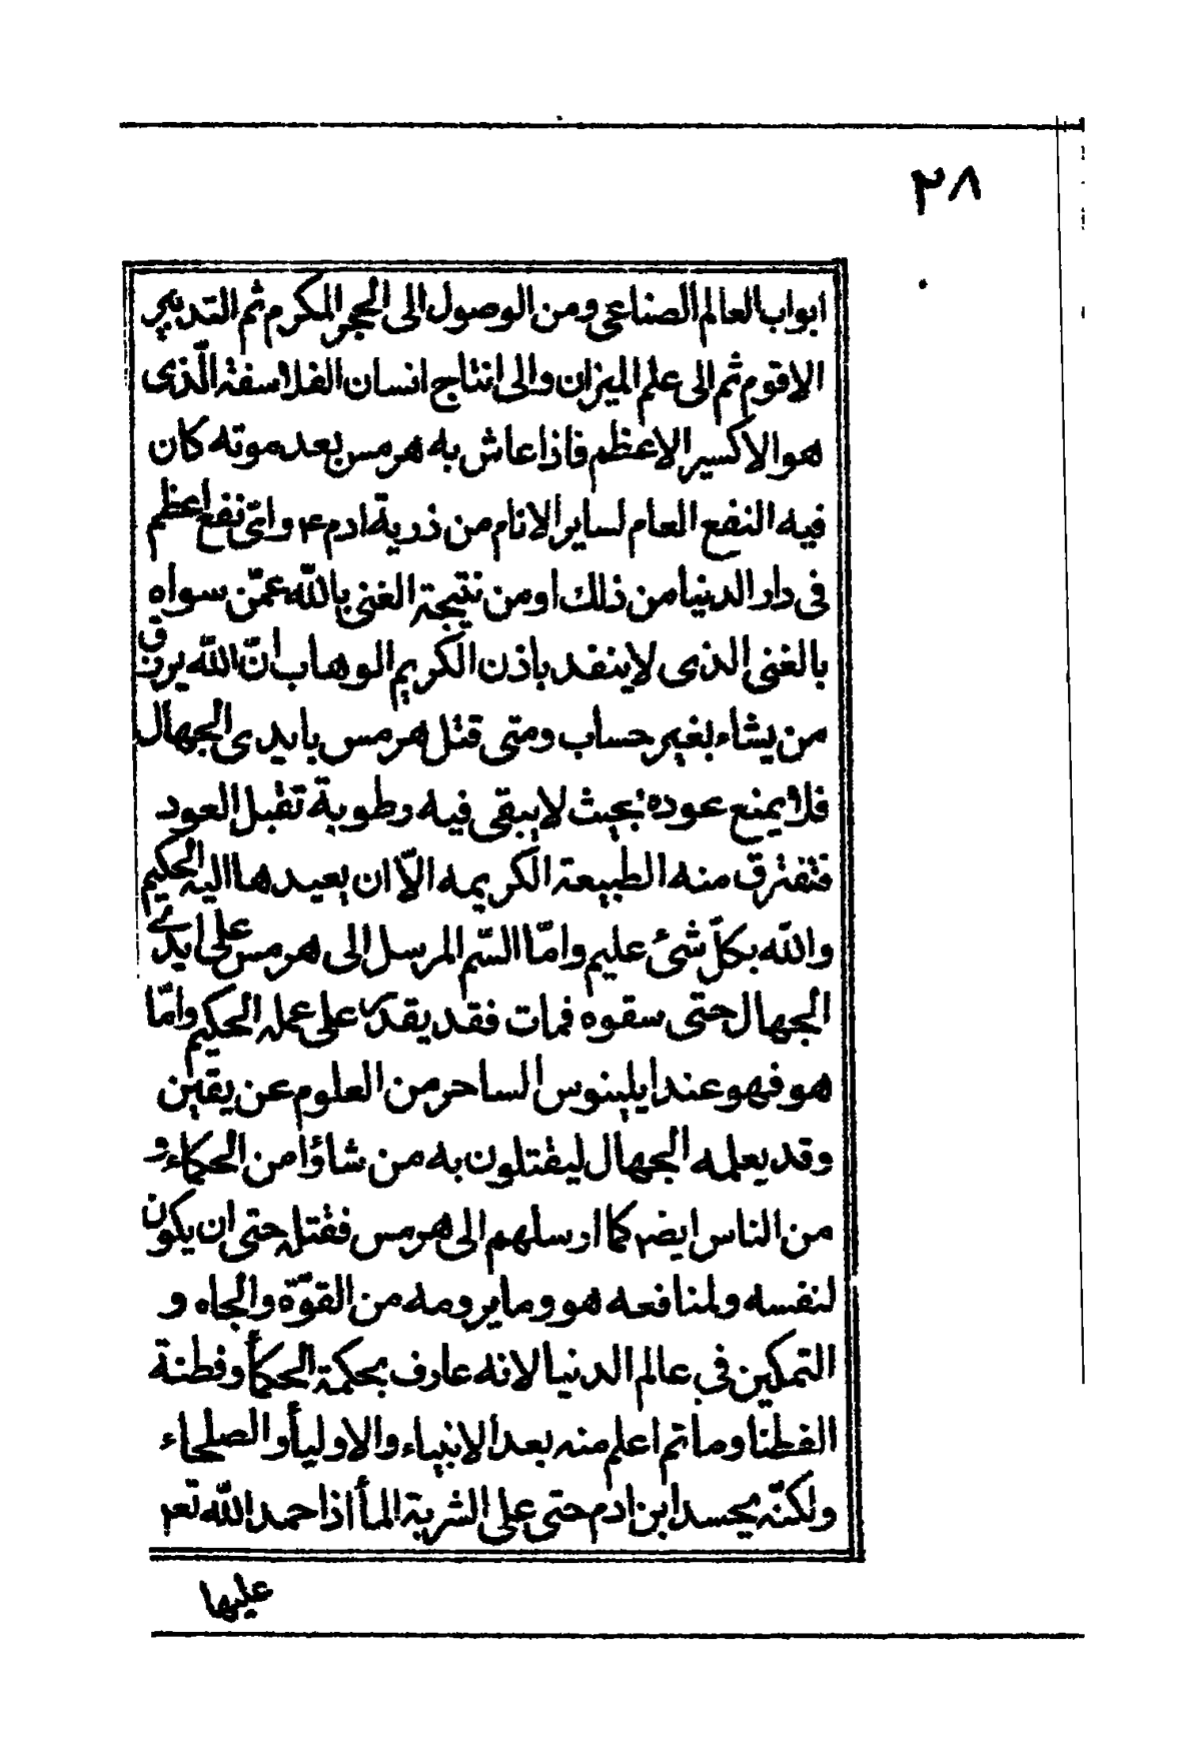 ٢٨
ابواب العالم الصناعى ومن الوصول الى الحجر المكرم ثم التدبير
الاقوم ثم الى علم الميزان والى انتاج انسان الفلاسفة الّذى
هو الاكسير الاعظم فاذا عاش به هرمس بعد موته كان
فيه النفع العام لساير الانام من ذرية ادم ٤ واىّ نفع اعظم
فى دار الدنيا من ذلك او من نتيجة الغنى باللّه عمّن سواه
بالغنى الذى لا ينفد باذن الكريم الوهاب انّ اللّه يرزق
من يشاء بغير حساب ومتى قتل هرمس بايدى الجهال
فلا يمنع عوده بحيث لا يبقى فيه رطوبة تقبل العود
فتفترق منه الطبيعة الكريمه الاّ ان يعيدها اليه الحكيم
واللّه بكلّ شئ عليم وامّا السّم المرسل الى هرمس على ايدى
الجهال حتى سقوه فمات فقد يقدر على عمله الحكيم وامّا
هو فهو عند ايلينوس الساحر من العلوم عن يقين
وقد يعلمه الجهال ليقتلون به من شاؤا من الحكماء و
من الناس ايضم كما ارسلهم الى هرمس فقتله حتى ان يكون
لنفسه ولمنافعه هو وما يرومه من القوّة والجاه و
التمكين فى عالم الدنيا لانه عارف بحكمة الحكمأ وفطنة
الفطنا وما ثم اعلم منه بعد الانبياء والاوليأ والصلحاء
ولكنّه يحسد ابن ادم حتى على الشربة المأ اذا حمد اللّه تعم
عليها